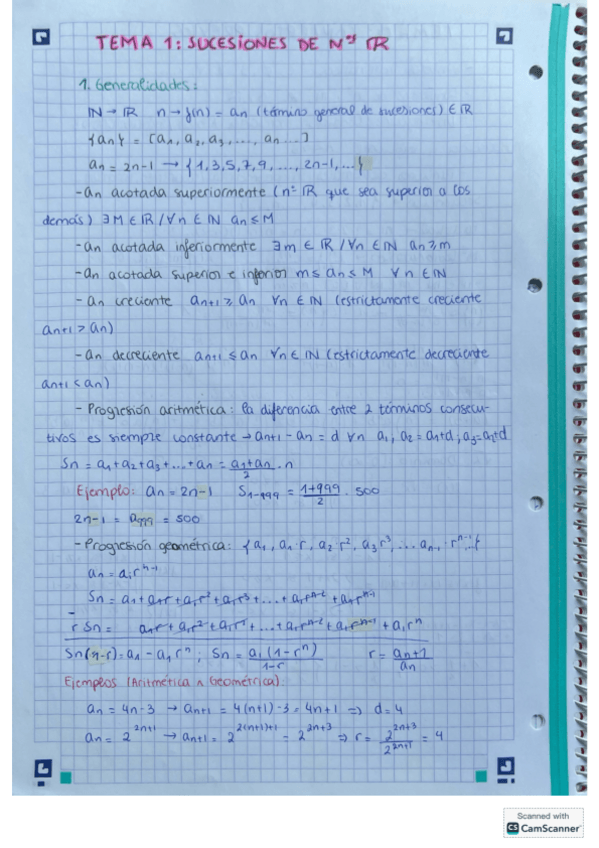 TEMA 1: SUCESIONES DE Nºs ℝ
1. Generalidades:
ℕ → ℝ   n → f(n) = an (término general de sucesiones) ∈ ℝ
{an} = [a1, a2, a3, ..., an ...]
an = 2n-1 → {1,3,5,7,9, ..., 2n-1, ...}
- an acotada superiormente (nº ℝ que sea superior a los
demás) ∃ M ∈ ℝ / ∀n ∈ ℕ an ≤ M
- an acotada inferiormente ∃ m ∈ ℝ / ∀n ∈ ℕ an ≥ m
- an acotada superior e inferior m ≤ an ≤ M ∀n ∈ ℕ
- an creciente an+1 ≥ an ∀n ∈ ℕ (estrictamente creciente
an+1 > an)
- an decreciente an+1 ≤ an ∀n ∈ ℕ (estrictamente decreciente
an+1 < an)
- Progresión aritmética: la diferencia entre 2 términos consecu-
tivos es siempre constante → an+1 - an = d ∀n a1, a2 = a1+d; a3 = a2+d
Sn = a1 + a2 + a3 + ... + an = (a1+an)/2 · n
Ejemplo: an = 2n-1   S1-999 = (1+999)/2 · 500
2n-1 = a999 = 500
- Progresión geométrica: {a1, a1·r, a2·r², a3r³, ... an-1·r^n-1...{
an = a1r^n-1
Sn = a1 + a1r + a1r² + a1r³ + ... + a1r^n-2 + a1r^n-1
- r Sn = a1r + a1r² + a1r³ + ... + a1r^n-2 + a1r^n-1 + a1r^n
Sn(1-r) = a1 - a1r^n; Sn = a1(1-r^n)/1-r   r = an+1/an
Ejemplos (Aritmética ∧ Geométrica):
an = 4n-3 → an+1 = 4(n+1)-3 = 4n+1 ⇒ d = 4
an = 2^2n+1 → an+1 = 2^2(n+1)+1 = 2^2n+3 ⇒ r = 2^2n+3/2^2n+1 = 4
Scanned with
CS CamScanner